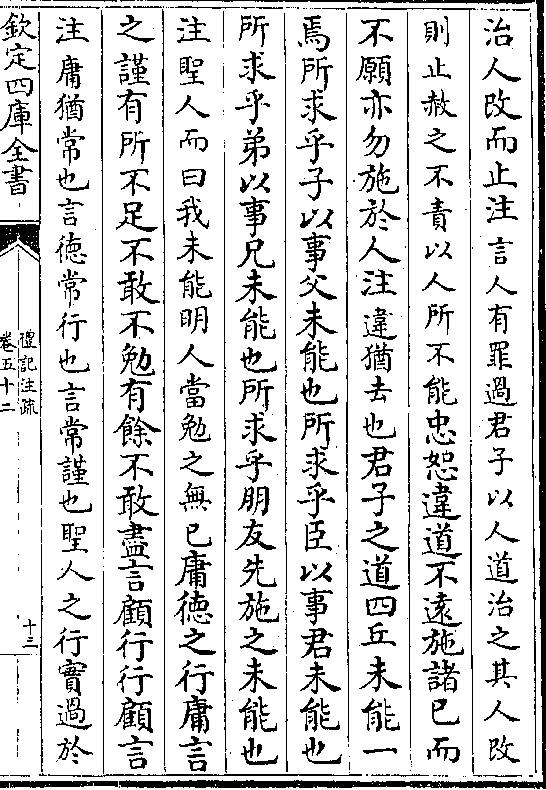 治人改而止注言人有罪過君子以人道治之其人改
則止赦之不責以人所不能忠恕違道不遠施諸己而
不願亦勿施於人注違猶去也君子之道四丘未能一
焉所求乎子以事父未能也所求乎臣以事君未能也
所求乎弟以事兄未能也所求乎朋友先施之未能也
注聖人而曰我未能明人當勉之無已庸德之行庸言
之謹有所不足不敢不勉有餘不敢盡言顧行行顧言
注庸猶常也言德常行也言常謹也聖人之行實過於
欽定四庫全書
禮記注疏
卷五十二
十三